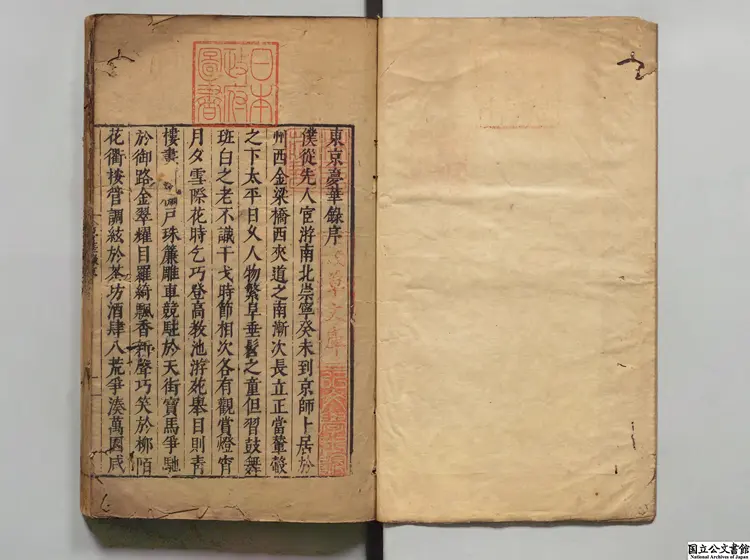 日本政府圖書
東京夢華錄序
僕從先人宦游南北崇寧癸未到京師卜居於
州西金梁橋西夾道之南漸次長立正當輦轂
之下太平日久人物繁阜垂髫之童但習鼓舞
班白之老不識干戈時節相次各有觀賞燈宵
月夕雪際花時乞巧登高教池游苑舉目則青
樓畫戶珠簾雕車競駐於天街寶馬爭馳
於御路金翠耀目羅綺飄香新聲巧笑於柳陌
花衢按管調絃於茶坊酒肆八荒爭湊萬國咸
草文庫
国立公文書館
National Archives of Japan